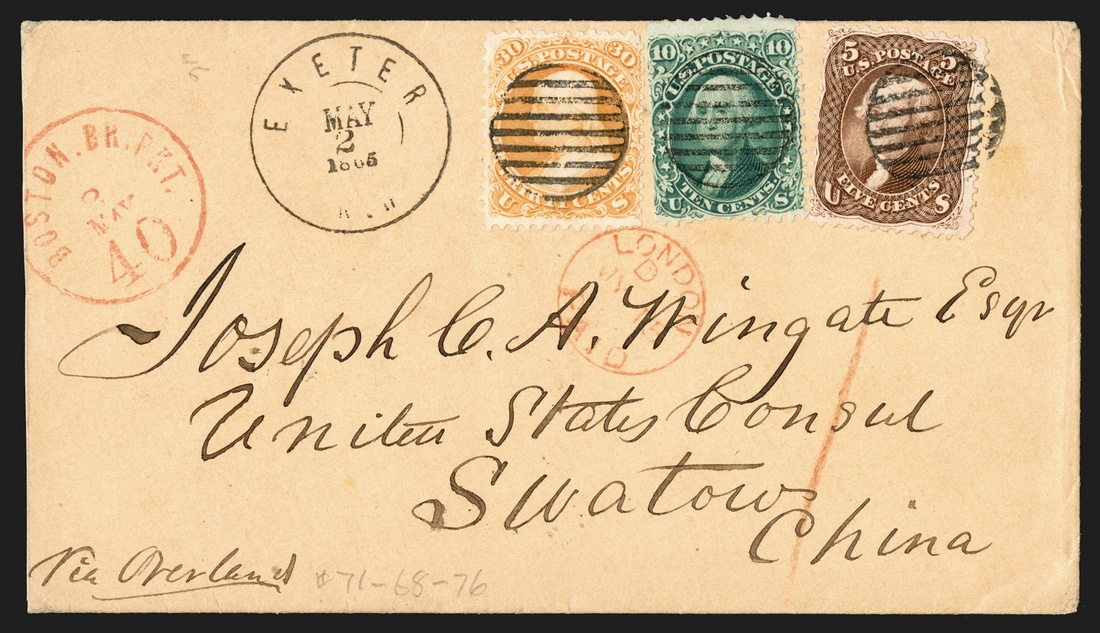 EXETER
MAY
2
1865
BOSTON. BR. PKT.
MAY
40
30 30
U.S. POSTAGE
U S
10 10
U.S. POSTAGE
TEN CENTS
U S
5 5
U.S. POSTAGE
FIVE CENTS
U S
LONDON
D
PAID
Joseph C. A. Wingate Esqr
United States Consul
Swatow
China
Via Overland
#71-68-76